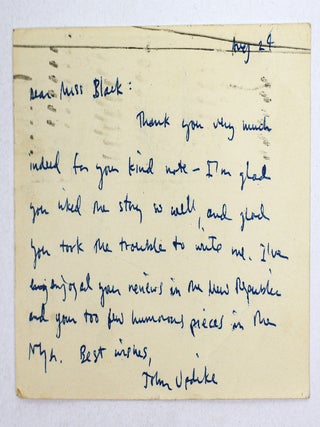 Aug 24
Dear Miss Black:
Thank you very much
indeed for your kind note – I'm glad
you liked the story so well, and glad
you took the trouble to write me. I've
enjoyed your reviews in the New Republic
and your too few humorous pieces in the
NYer. Best wishes,
John Updike